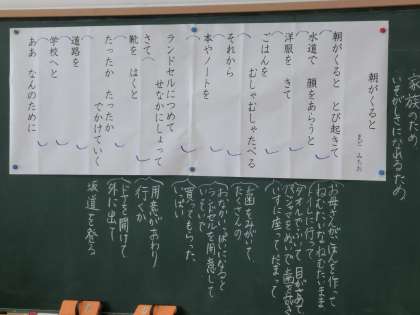 朝がくると
まど みちお
朝がくると とび起きて
水道で 顔をあらうと
洋服を きて
ごはんを
むしゃむしゃたべる
それから
本やノートを
ランドセルにつめて
せなかにしょって
さて
靴を はくと
たったか たったか
でかけていく
道路を
学校へと
ああ なんのために
お母さんがごはんを作って
ねむたいなねむたいまま
タオルでふいて 目がさめて
パジャマをぬいで
いすに座って だまって
歯をみがいて
たくさんの
おなかいっぱいになると
ランドセルを用意して
買ってもらった
いっぱい
用意がおわり
行くか
ドアを開けて
外に出て
坂道を登る